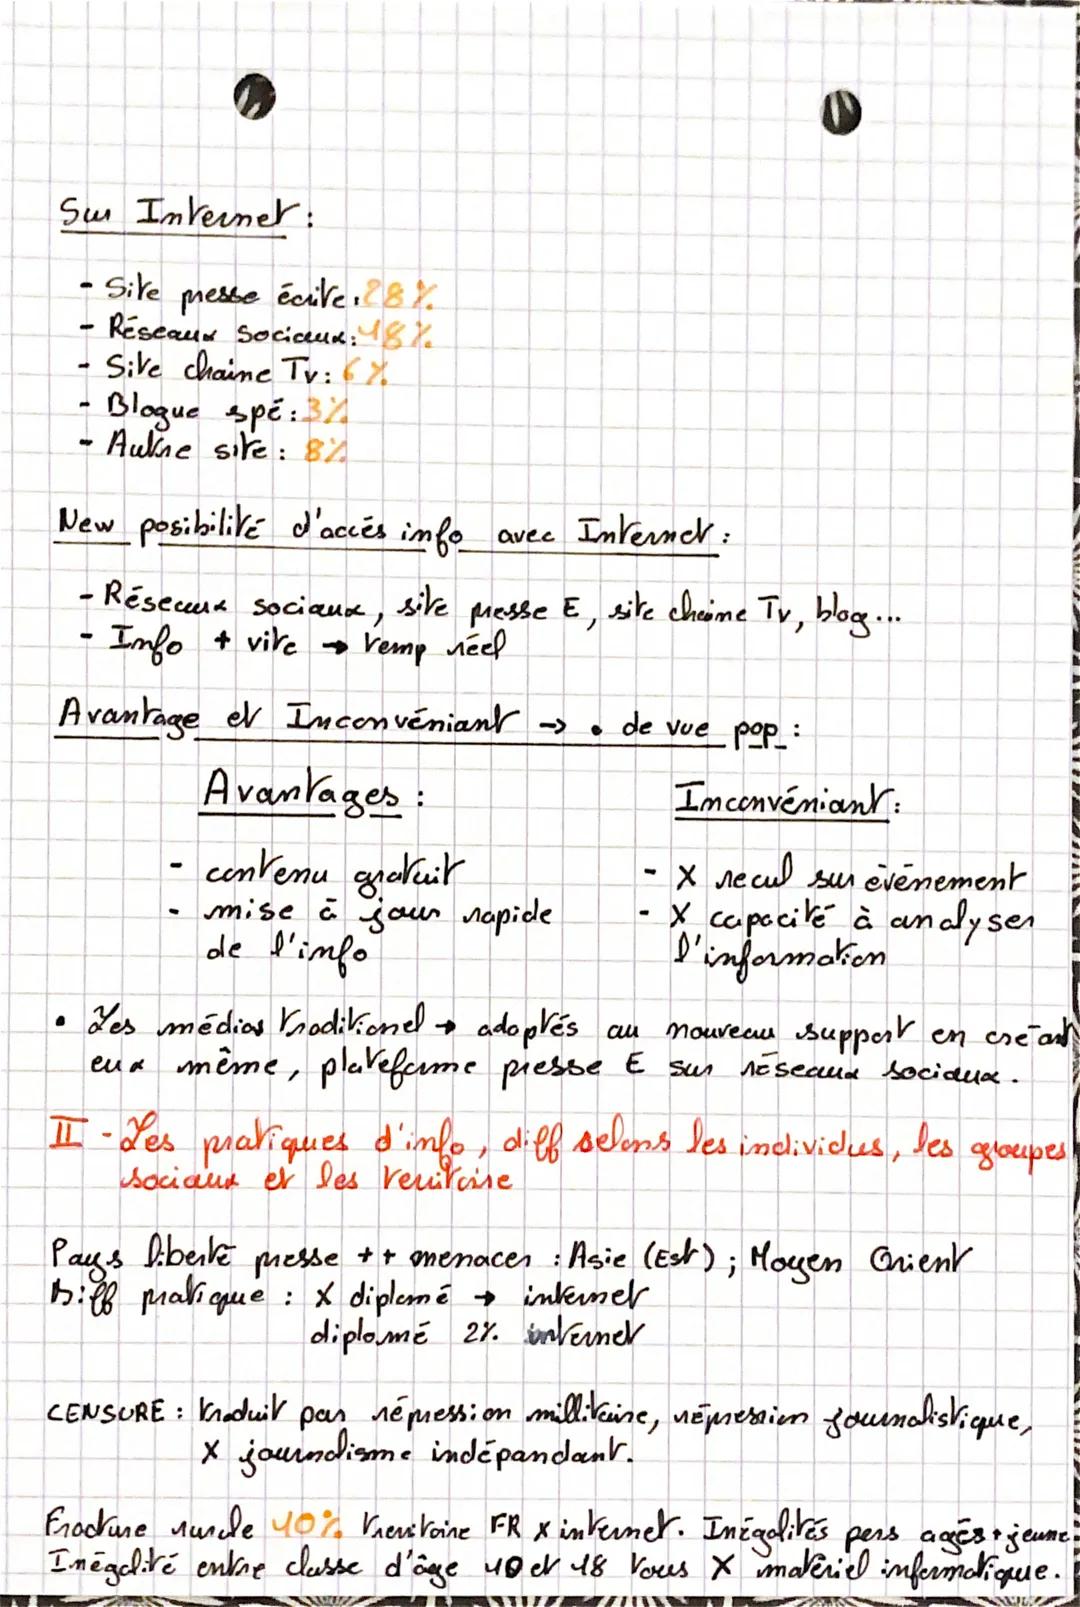 Sur Internet :
- Site presse écrite : 28%
- Réseaux sociaux : 18%
- Site chaine Tv : 6%
- Blogue spé : 3%
- Autre site : 8%
New posibilité d'accés info avec Internet :
- Réseaux sociaux, site presse E, site chaine Tv, blog...
- Info + vite → temp réel
Avantage et Inconvéniant → • de vue pop :
Avantages :
- contenu gratuit
- mise à jour rapide
de l'info
Inconvéniant :
- X recul sur évènement
- X capacité à analyser
l'information
• Les médias traditionel → adoptés au nouveau support en créant
eux même, plateforme presse E sur réseaux sociaux.
II - Les pratiques d'info, diff selons les individus, les groupes
sociaux et les territoire
Pays liberté presse ++ menacer : Asie (Est) ; Moyen Orient
Diff pratique : X diplomé → internet
diplomé 2% internet
CENSURE : traduit par répression millitaire, répression journalistique,
X journalisme indépandant.
Fracture rurale 10% territoire FR X internet. Inégalités pers agés + jeune.
Inégalité entre classe d'âge 10 et 18 tous X matériel informatique.